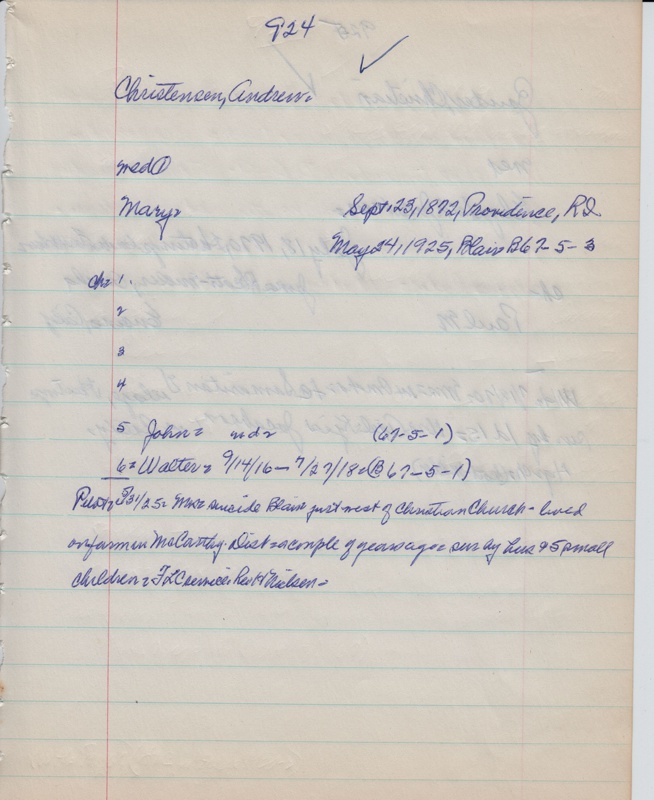 924
Christensen, Andrew=
med ①
Mary= Sept. 23, 1872, Providence, RI
May 24, 1925, Blair B 67-5-3
ch= 1.
2
3
4
5 John= md= (67-5-1)
6= Walter= 9/14/16 — 7/27/18= (B 67-5-1)
Pilot= 5/31/25= Mrs= suicide Blair just west of Christian Church - lived
on farm in McCarthy Dist= a couple of years ago= surv by hus & 5 small
children= FLC services Rev H Nielsen=